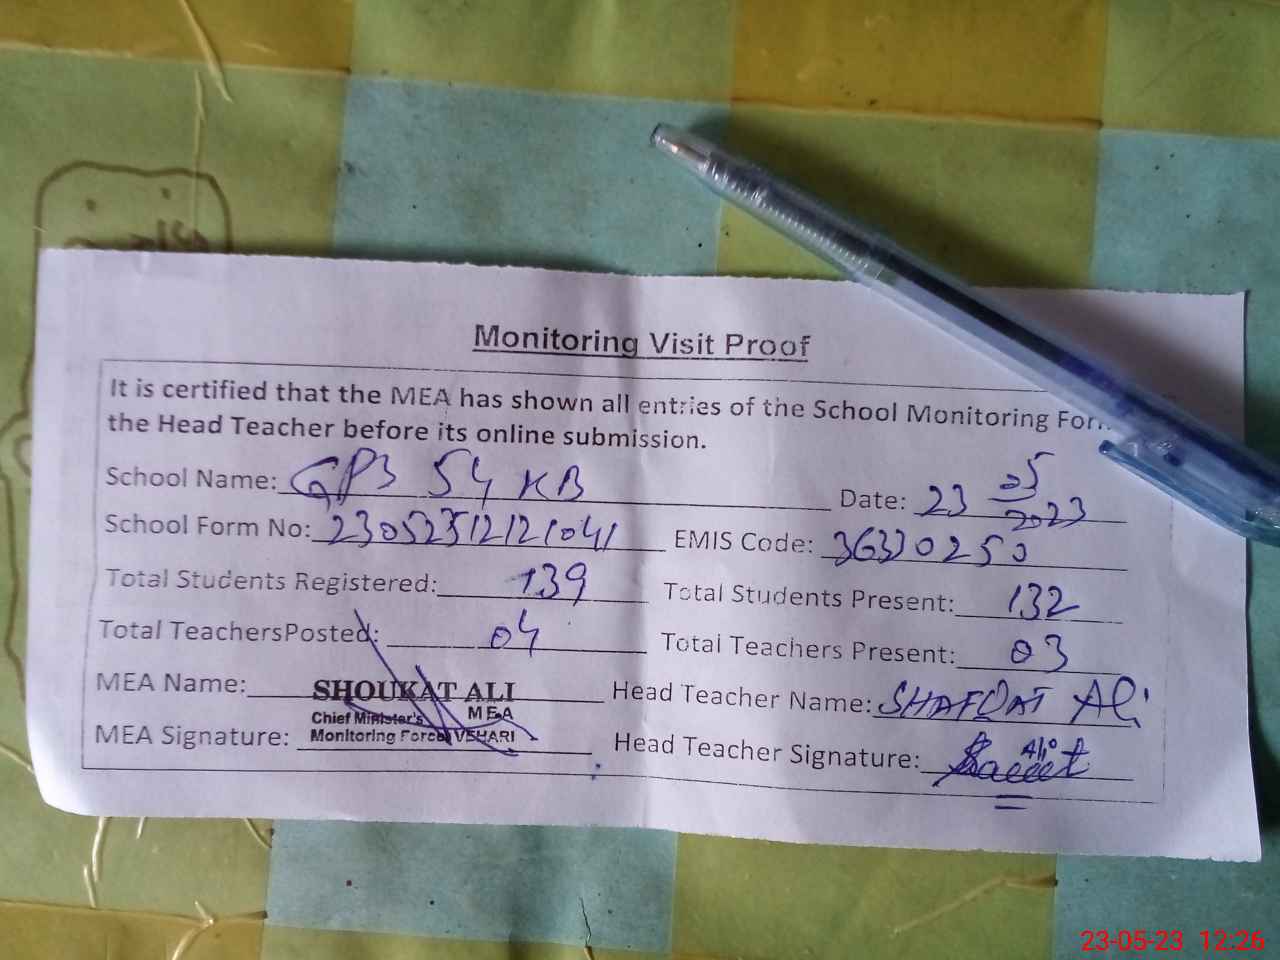 Monitoring Visit Proof
It is certified that the MEA has shown all entries of the School Monitoring Form
the Head Teacher before its online submission.
School Name: GPS 54 KB Date: 23 05 2023
School Form No: 23052512121041 EMIS Code: 36330250
Total Students Registered: 139 Total Students Present: 132
Total TeachersPosted: 04 Total Teachers Present: 03
MEA Name: SHOUKAT ALI Head Teacher Name: SHAFQAT Ali
MEA
Chief Minister's
Monitoring Force VEHARI
MEA Signature: Head Teacher Signature:
23-05-23 12:26